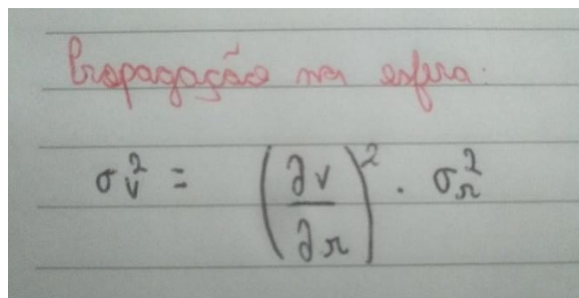 Propagação na esfera:
σ_v² = (∂v/∂r)² · σ_r²